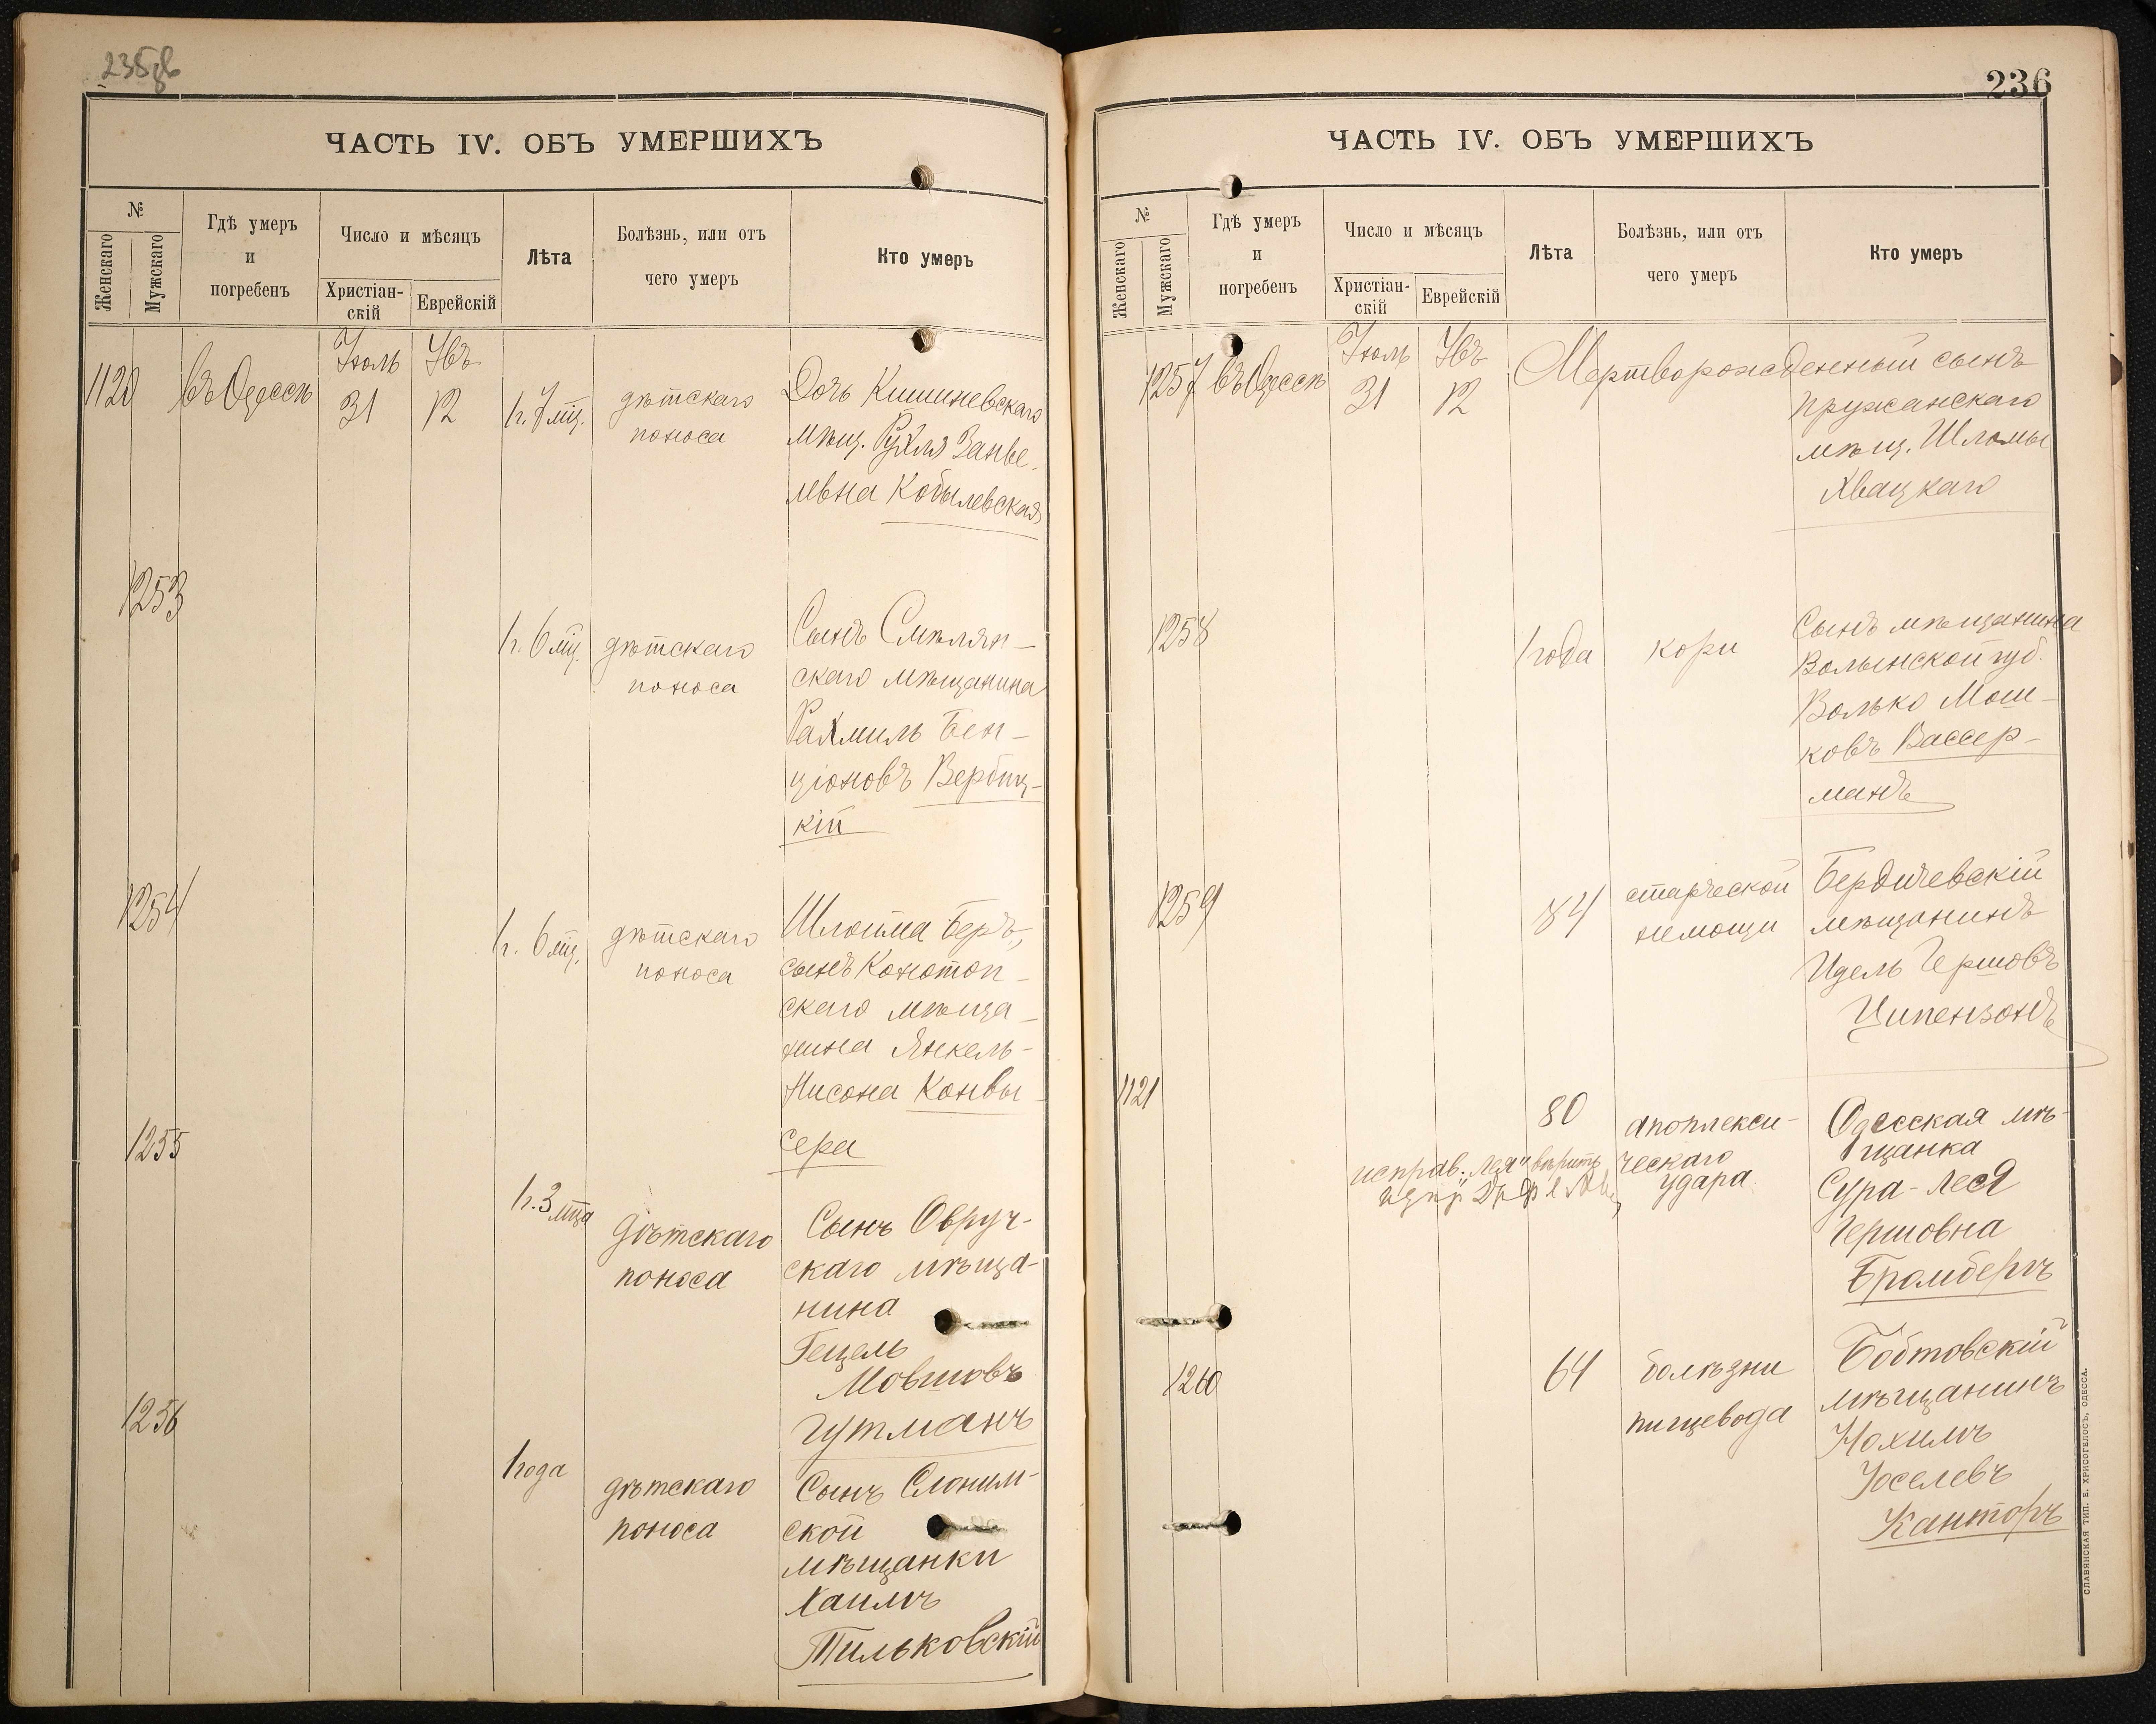 235
ЧАСТЬ IV. ОБЪ УМЕРШИХЪ
№
Женскаго
Мужскаго
Гдѣ умеръ
и
погребенъ
Число и мѣсяцъ
Христіан-
скій
Еврейскій
Лѣта
Болѣзнь, или отъ
чего умеръ
Кто умеръ
1120
въ Одессѣ
Іюль
31
Увъ
12
1 г. 7 мц.
дѣтскаго
поноса
Дочь Кишиневскаго
мѣщ. Рухля Занве-
левна Кобылевская
1253
1 г. 6 мц.
дѣтскаго
поноса
Сынъ Смѣлян-
скаго мѣщанина
Рахмиль Бен-
ціоновъ Вербиц-
кій
1254
1 г. 6 мц.
дѣтскаго
поноса
Шлойма Беръ,
сынъ Конотоп-
скаго мѣща-
нина Янкель-
Нисона Конвы-
сера
1255
1 г. 3 мца
дѣтскаго
поноса
Сынъ Овруч-
скаго мѣща-
нина
Гецель
Мовшовъ
Гутманъ
1256
1 года
дѣтскаго
поноса
Сынъ Слоним-
ской
мѣщанки
Хаимъ
Тильковскій
236
ЧАСТЬ IV. ОБЪ УМЕРШИХЪ
№
Женскаго
Мужскаго
Гдѣ умеръ
и
погребенъ
Число и мѣсяцъ
Христіан-
скій
Еврейскій
Лѣта
Болѣзнь, или отъ
чего умеръ
Кто умеръ
1257
въ Одессѣ
Іюль
31
Увъ
12
Мертворожденный сынъ
Пружанскаго
мѣщ. Шломы
Хвацкаго
1258
1 года
кори
Сынъ мѣщанина
Волынской губ.
Волько Мош-
ковъ Вассер-
манъ
1259
84
старческой
немощи
Бердичевскій
мѣщанинъ
Идель Гершовъ
Ципензонъ
1121
80
апоплекси-
ческаго
удара
исправ. "Лея" вѣрить
Одесская мѣ-
щанка
Сура-Лея
Гершовна
Бромбергъ
1260
64
болѣзни
пищевода
мѣщанинъ
Нохимъ
Іоселевъ
Канторъ
СЛАВЯНСКАЯ ТИП. Е. ХРИСОГЕЛОСЪ, ОДЕССА.